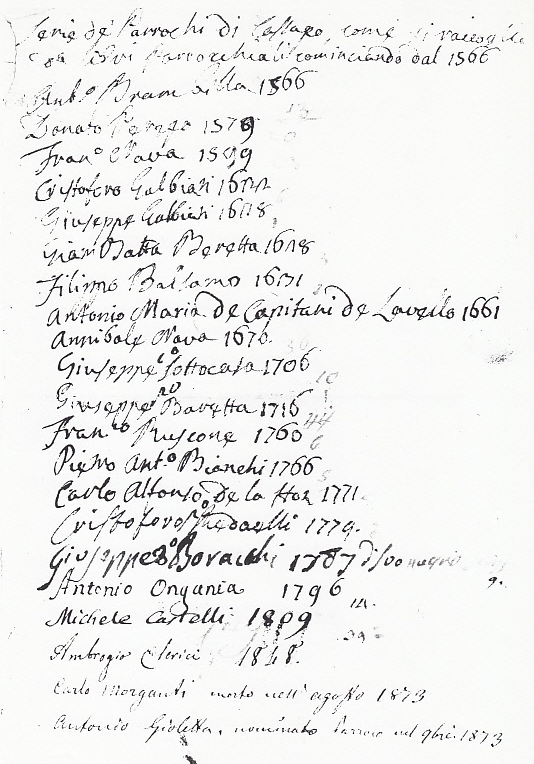 Serie de' Parrochi di Cassago, come si raccoglie
Libri Parrocchiali cominciando dal 1566
Antº Brambilla 1566
Donato Perego 1579
Franº Nava 1599
Cristoforo Galbiati 1622
Giuseppe Galbiati 1628
Giam Batta Beretta 1628
Filippo Balsamo 1631
Antonio Maria de Capitani de Lavello 1661
Annibale Nava 1676
Giuseppe Sottocasa 1706
Giuseppe Baretta 1716
Franco Ruscone 1760
Pietro Antº Bianchi 1766
Carlo Alfonso de la Hoz 1771.
Cristoforo Redaelli 1779.
Giuseppe Boracchi 1787
Antonio Ongania 1796
Michele Castelli 1809
Ambrogio Clerici 1848.
Carlo Morganti morto nell' agosto 1873
Antonio Gioletta, nominato Parroco nel 9bre 1873